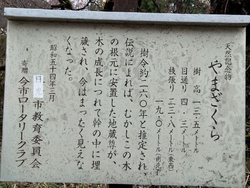 天然記念物
やまざくら
樹高 一三・五メートル
目通り 四・三メートル
枝張り 二三・八メートル(東西)
一九・〇メートル(南北)
樹令約二六〇年と推定され、
伝説によれば、むかしこの木
の根元に安置した地蔵尊が、
木の成長につれて幹の中に埋
蔵され、今はまったく見えな
くなった。
昭和五十四年三月
日光市教育委員会
寄贈 今市ロータリークラブ